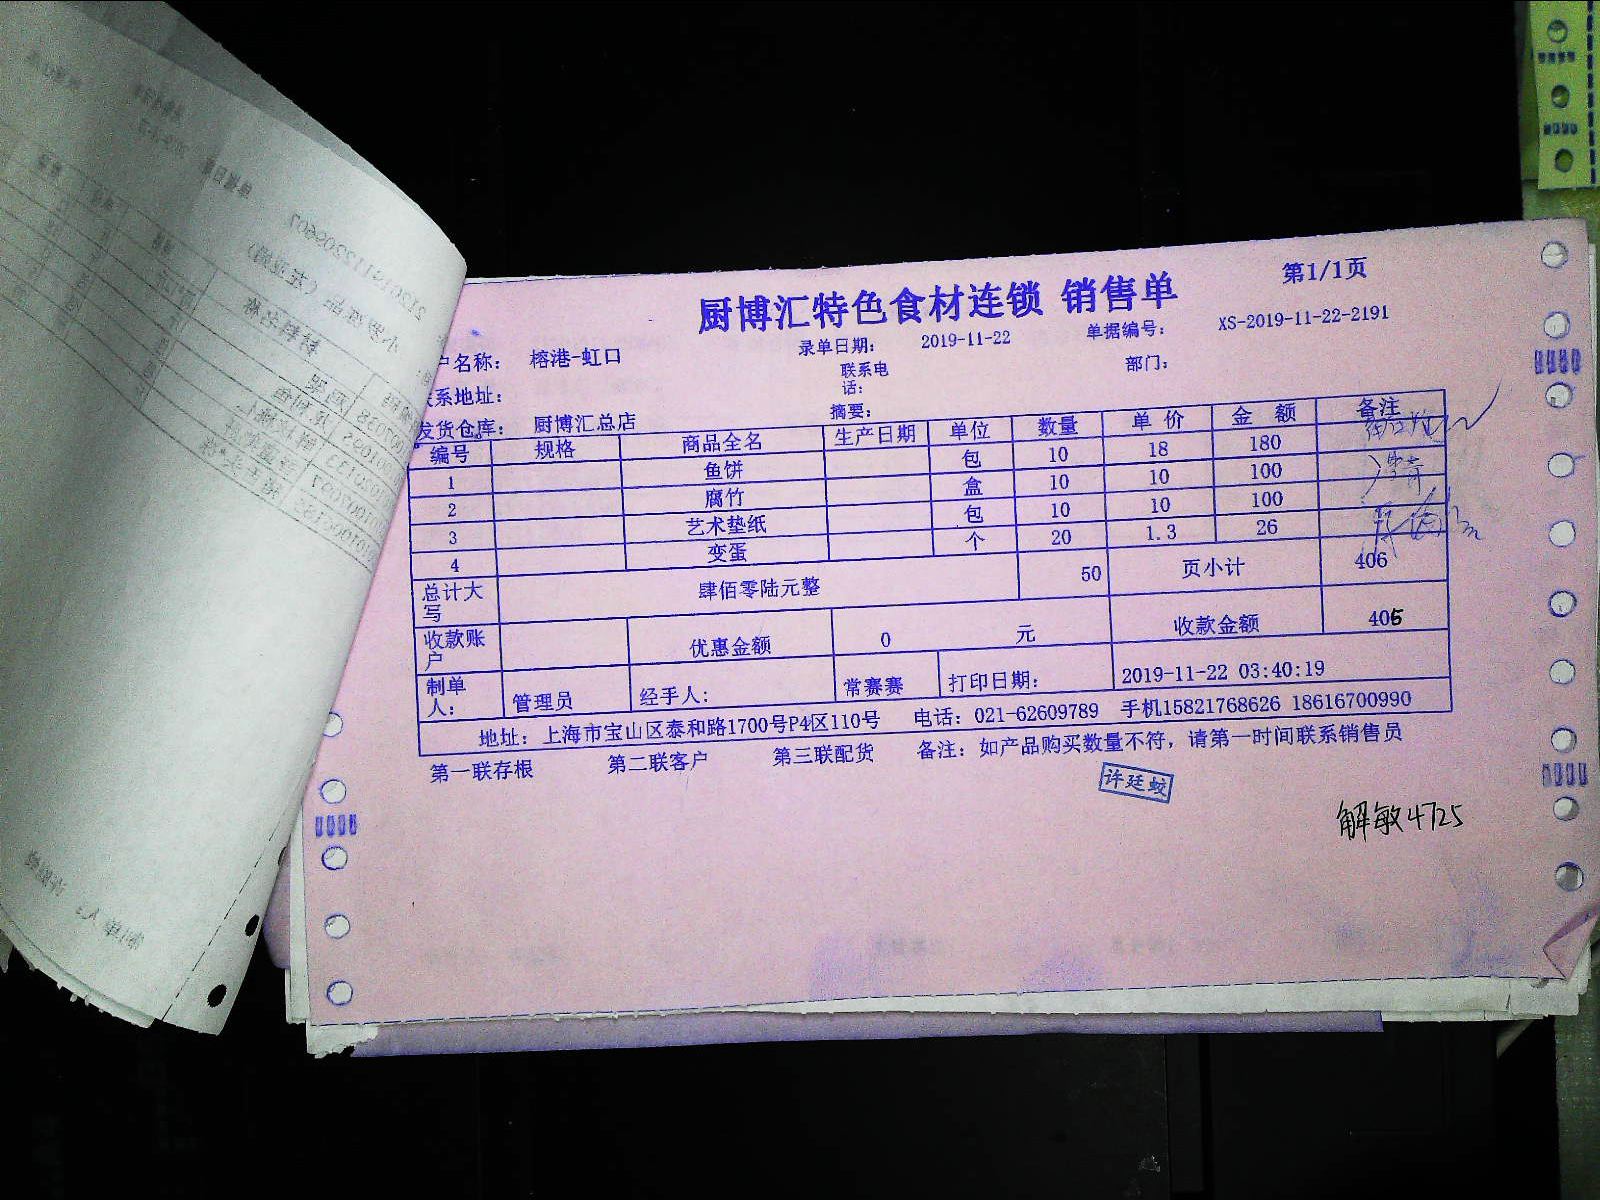 厨博汇特色食材连锁 销售单
第1/1页
户名称： 榕港-虹口 录单日期： 2019-11-22 单据编号： XS-2019-11-22-2191
系地址： 联系电话： 部门：
发货仓库： 厨博汇总店 摘要：
编号 规格 商品全名 生产日期 单位 数量 单 价 金 额 备注
1 鱼饼 包 10 18 180
2 腐竹 盒 10 10 100
3 艺术垫纸 包 10 10 100
4 变蛋 个 20 1.3 26
总计大写 肆佰零陆元整 50 页小计 406
收款账户 优惠金额 0 元 收款金额 406
制单人： 管理员 经手人： 常赛赛 打印日期： 2019-11-22 03:40:19
地址：上海市宝山区泰和路1700号P4区110号 电话：021-62609789 手机15821768626 18616700990
第一联存根 第二联客户 第三联配货 备注：如产品购买数量不符，请第一时间联系销售员
许廷蛟
解敏4725